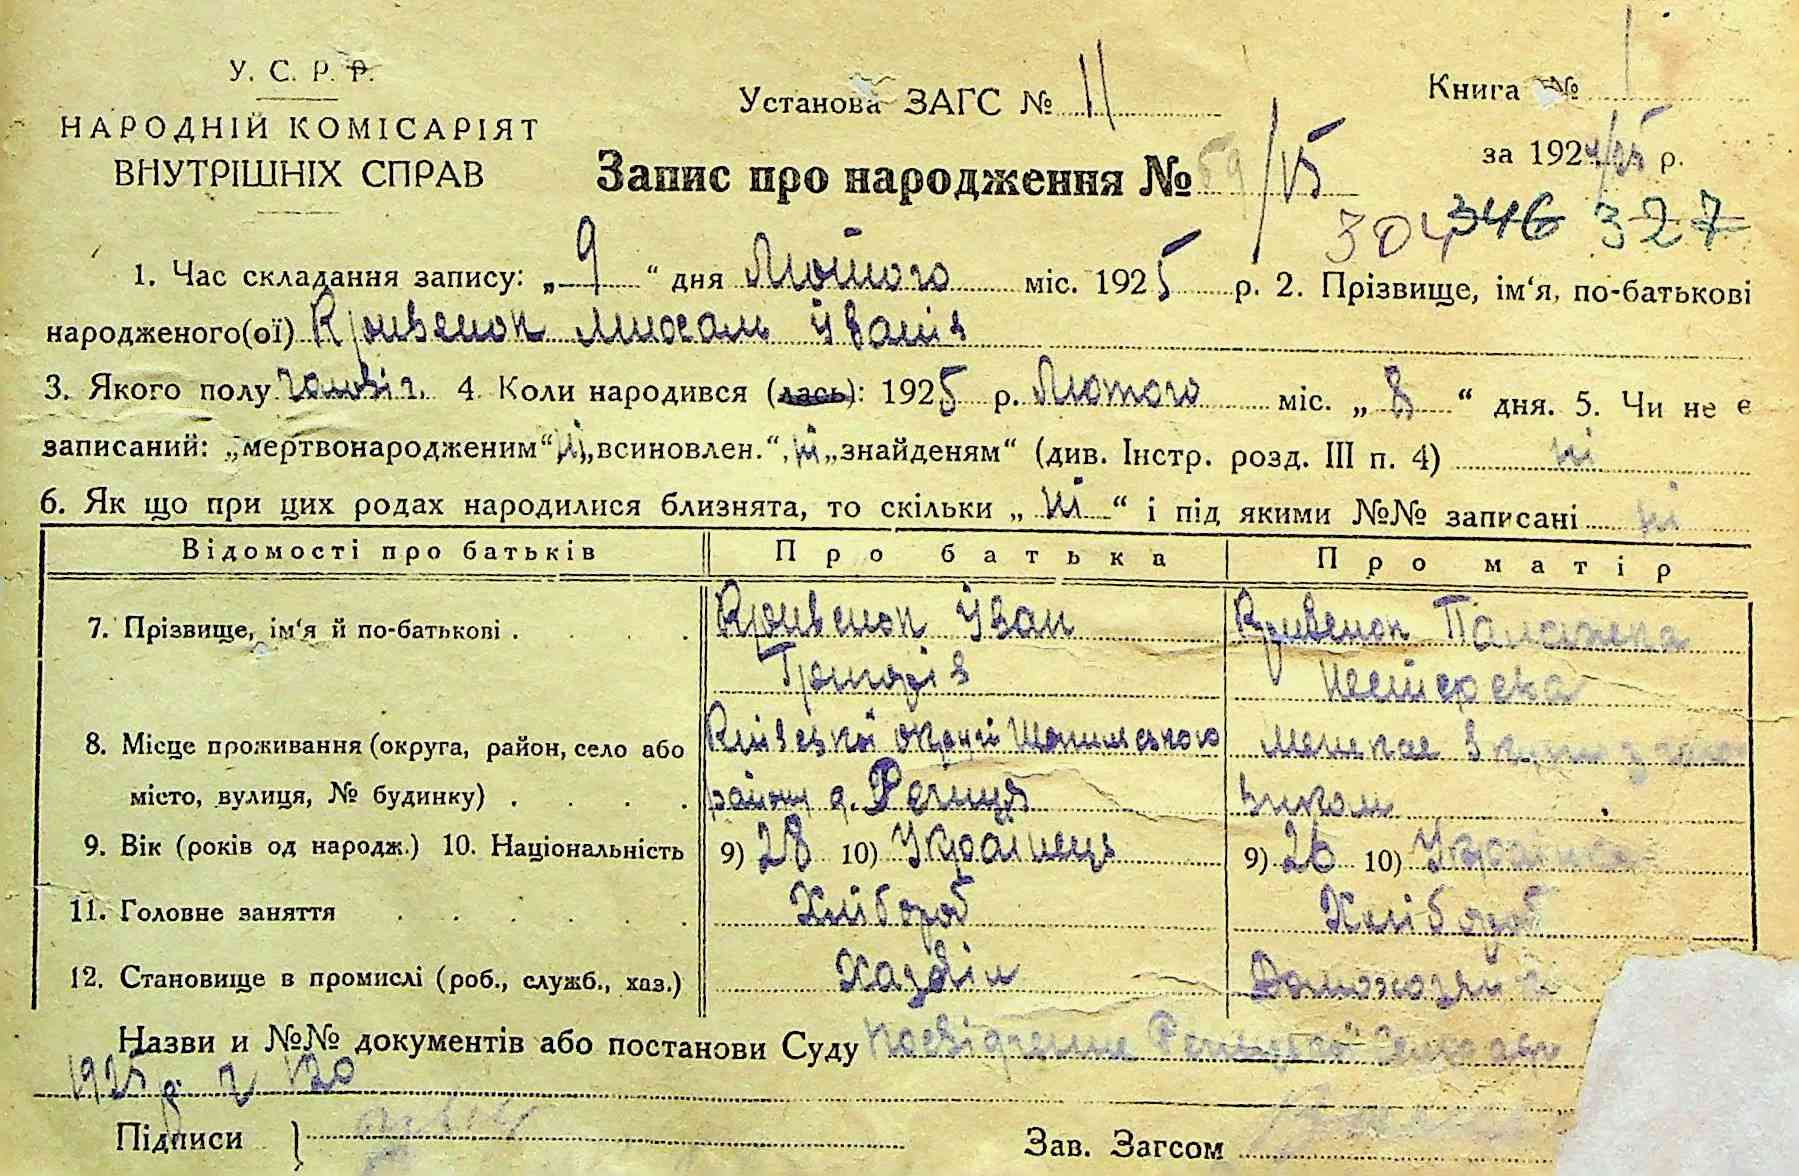 У. С. Р. Р.
НАРОДНІЙ КОМІСАРІЯТ
ВНУТРІШНІХ СПРАВ
Установа ЗАГС № 11
Книга № 1
за 1924/25 р.
Запис про народження № 59/15
304 346 327
1. Час складання запису: „ 9 “ дня Лютого міс. 1925 р. 2. Прізвище, ім‘я, по-батькові
народженого(ої) Кривенок Михайло Іванів
3. Якого полу чоловіч. 4. Коли народився (лась): 1925 р. Лютого міс. „ 8 “ дня. 5. Чи не є
записаний: „мертвонародженим“ ні „всиновлен.“, ні „знайденям“ (див. Інстр. розд. III п. 4) ні
6. Як що при цих родах народилися близнята, то скільки „ ні “ і під якими №№ записані ні
Відомості про батьків Про батька Про матір
7. Прізвище, ім‘я й по-батькові . . . . Кривенок Іван Кривенок Палажка
Григорів Нестерова
8. Місце проживання (округа, район, село або Київської округи района мешкае вкупі з чоло
місто, вулиця, № будинку) . . . . району д. Речиця віком
9. Вік (років од народж.) 10. Національність 9) 28 10) Українець 9) 26 10) Українка
11. Головне заняття . . . . . . Хлібороб Хлібороб
12. Становище в промислі (роб., служб., хаз.) Хазяїн Домохозяйка
Назви и №№ документів або постанови Суду посвідчення Речицької Сельради
1925 р. ч 120
Підписи }
Зав. Загсом